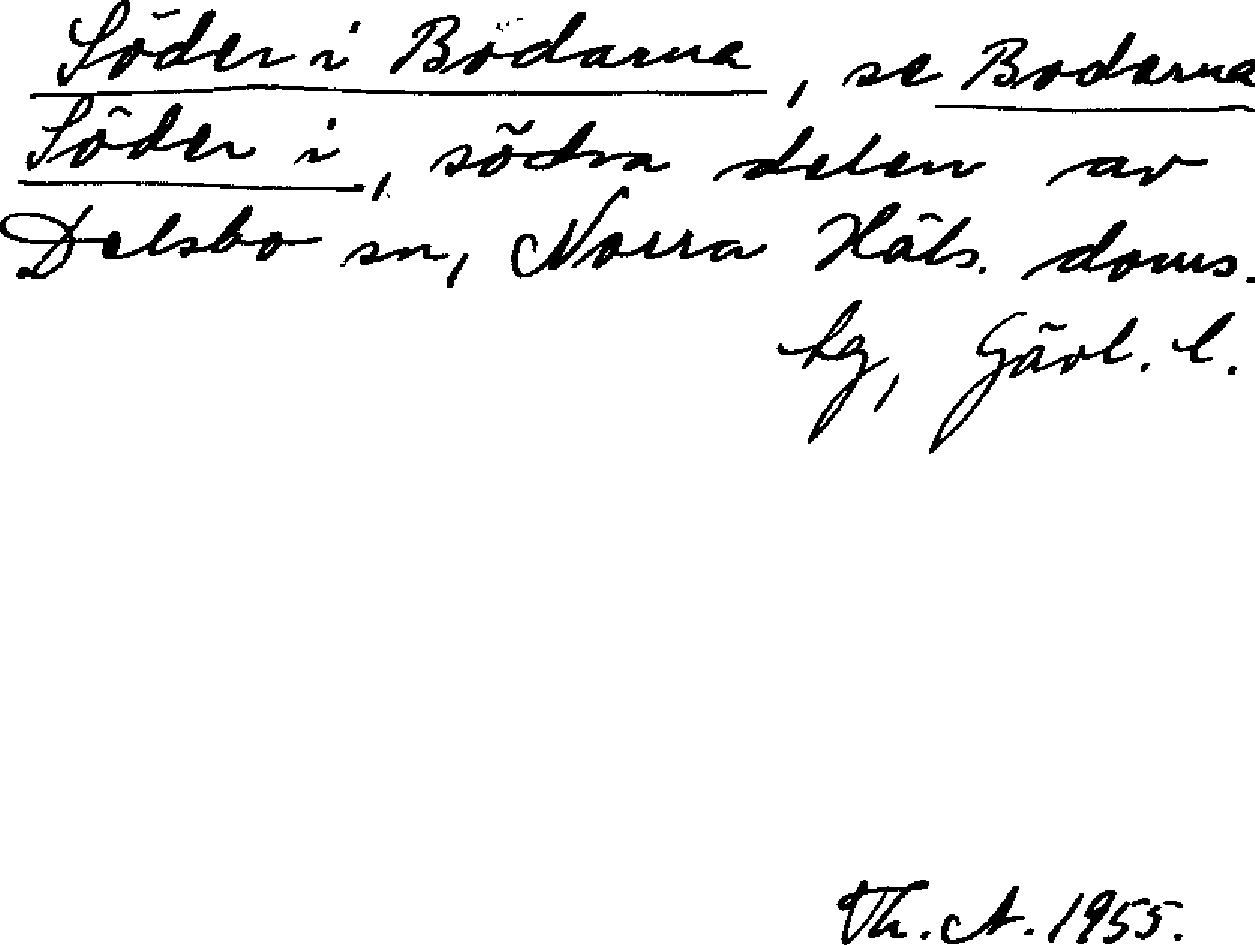 Söder i Bodarna, se Bodarna
Söder i, södra delen av
Delsbo sn, Norra Häls. doms.
hg, Gävl. l.
Th. A. 1955.